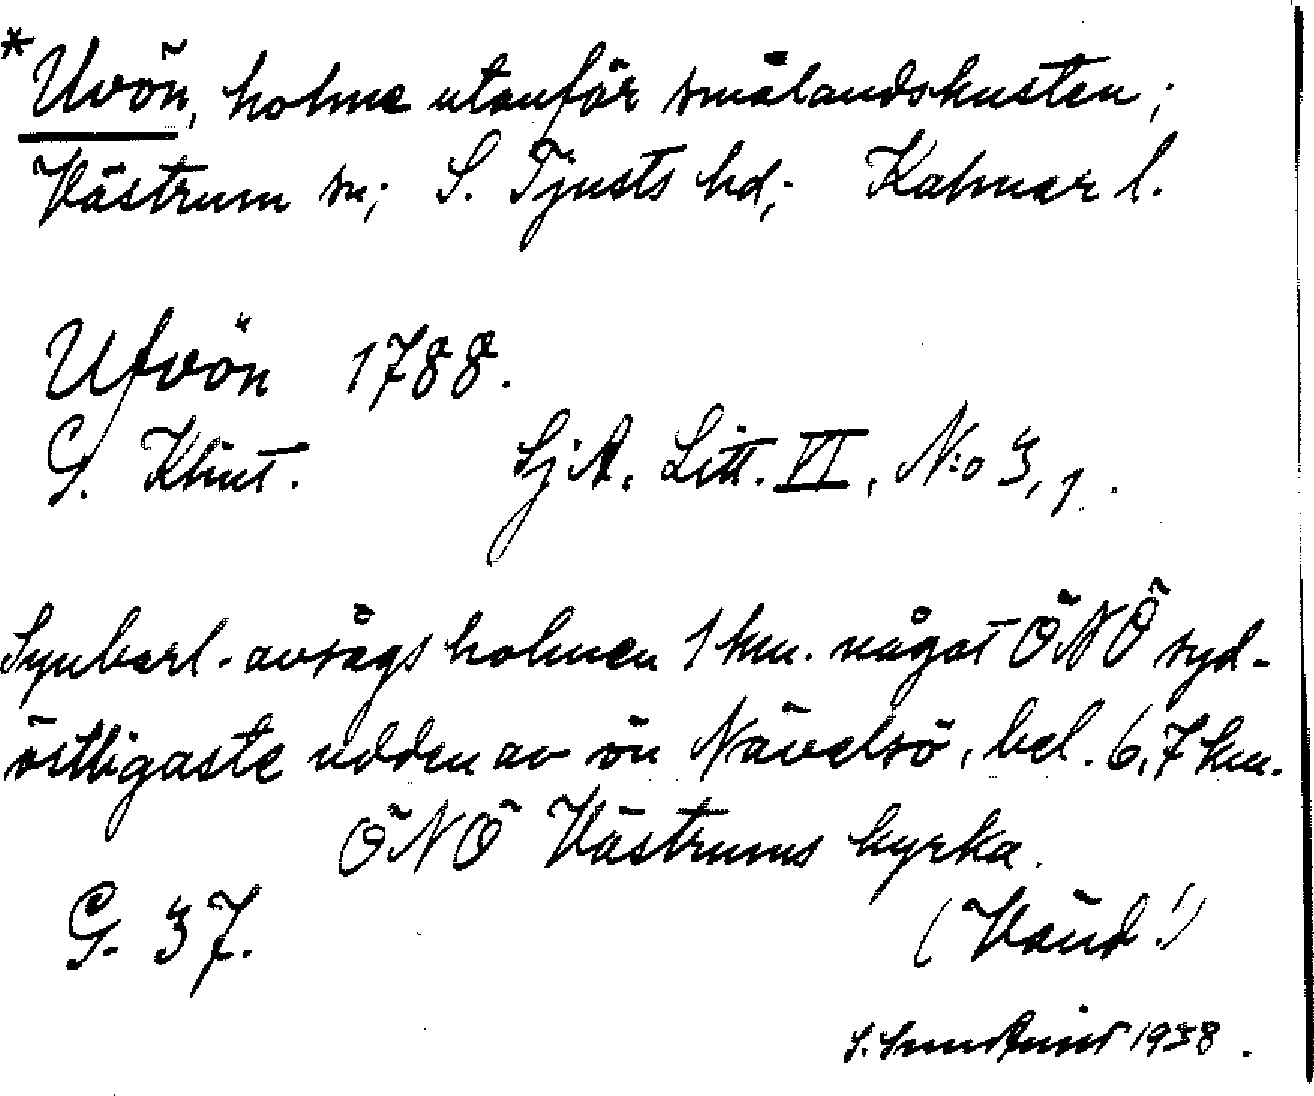 *Uvön, holme utanför smålandskusten;
Västrum sn; S. Tjusts hd; Kalmar l.
Ufvön 1788.
G. Klint. SjA. Litt. VI, N:o 3, 1.
Synbarl. avsågs holmen 1 km. något ÖNÖ syd-
östligaste udden av ön Nävelsö, bel. 6,7 km.
ÖNÖ Västrums kyrka.
G. 37. (Vänd!)
S. 1938.